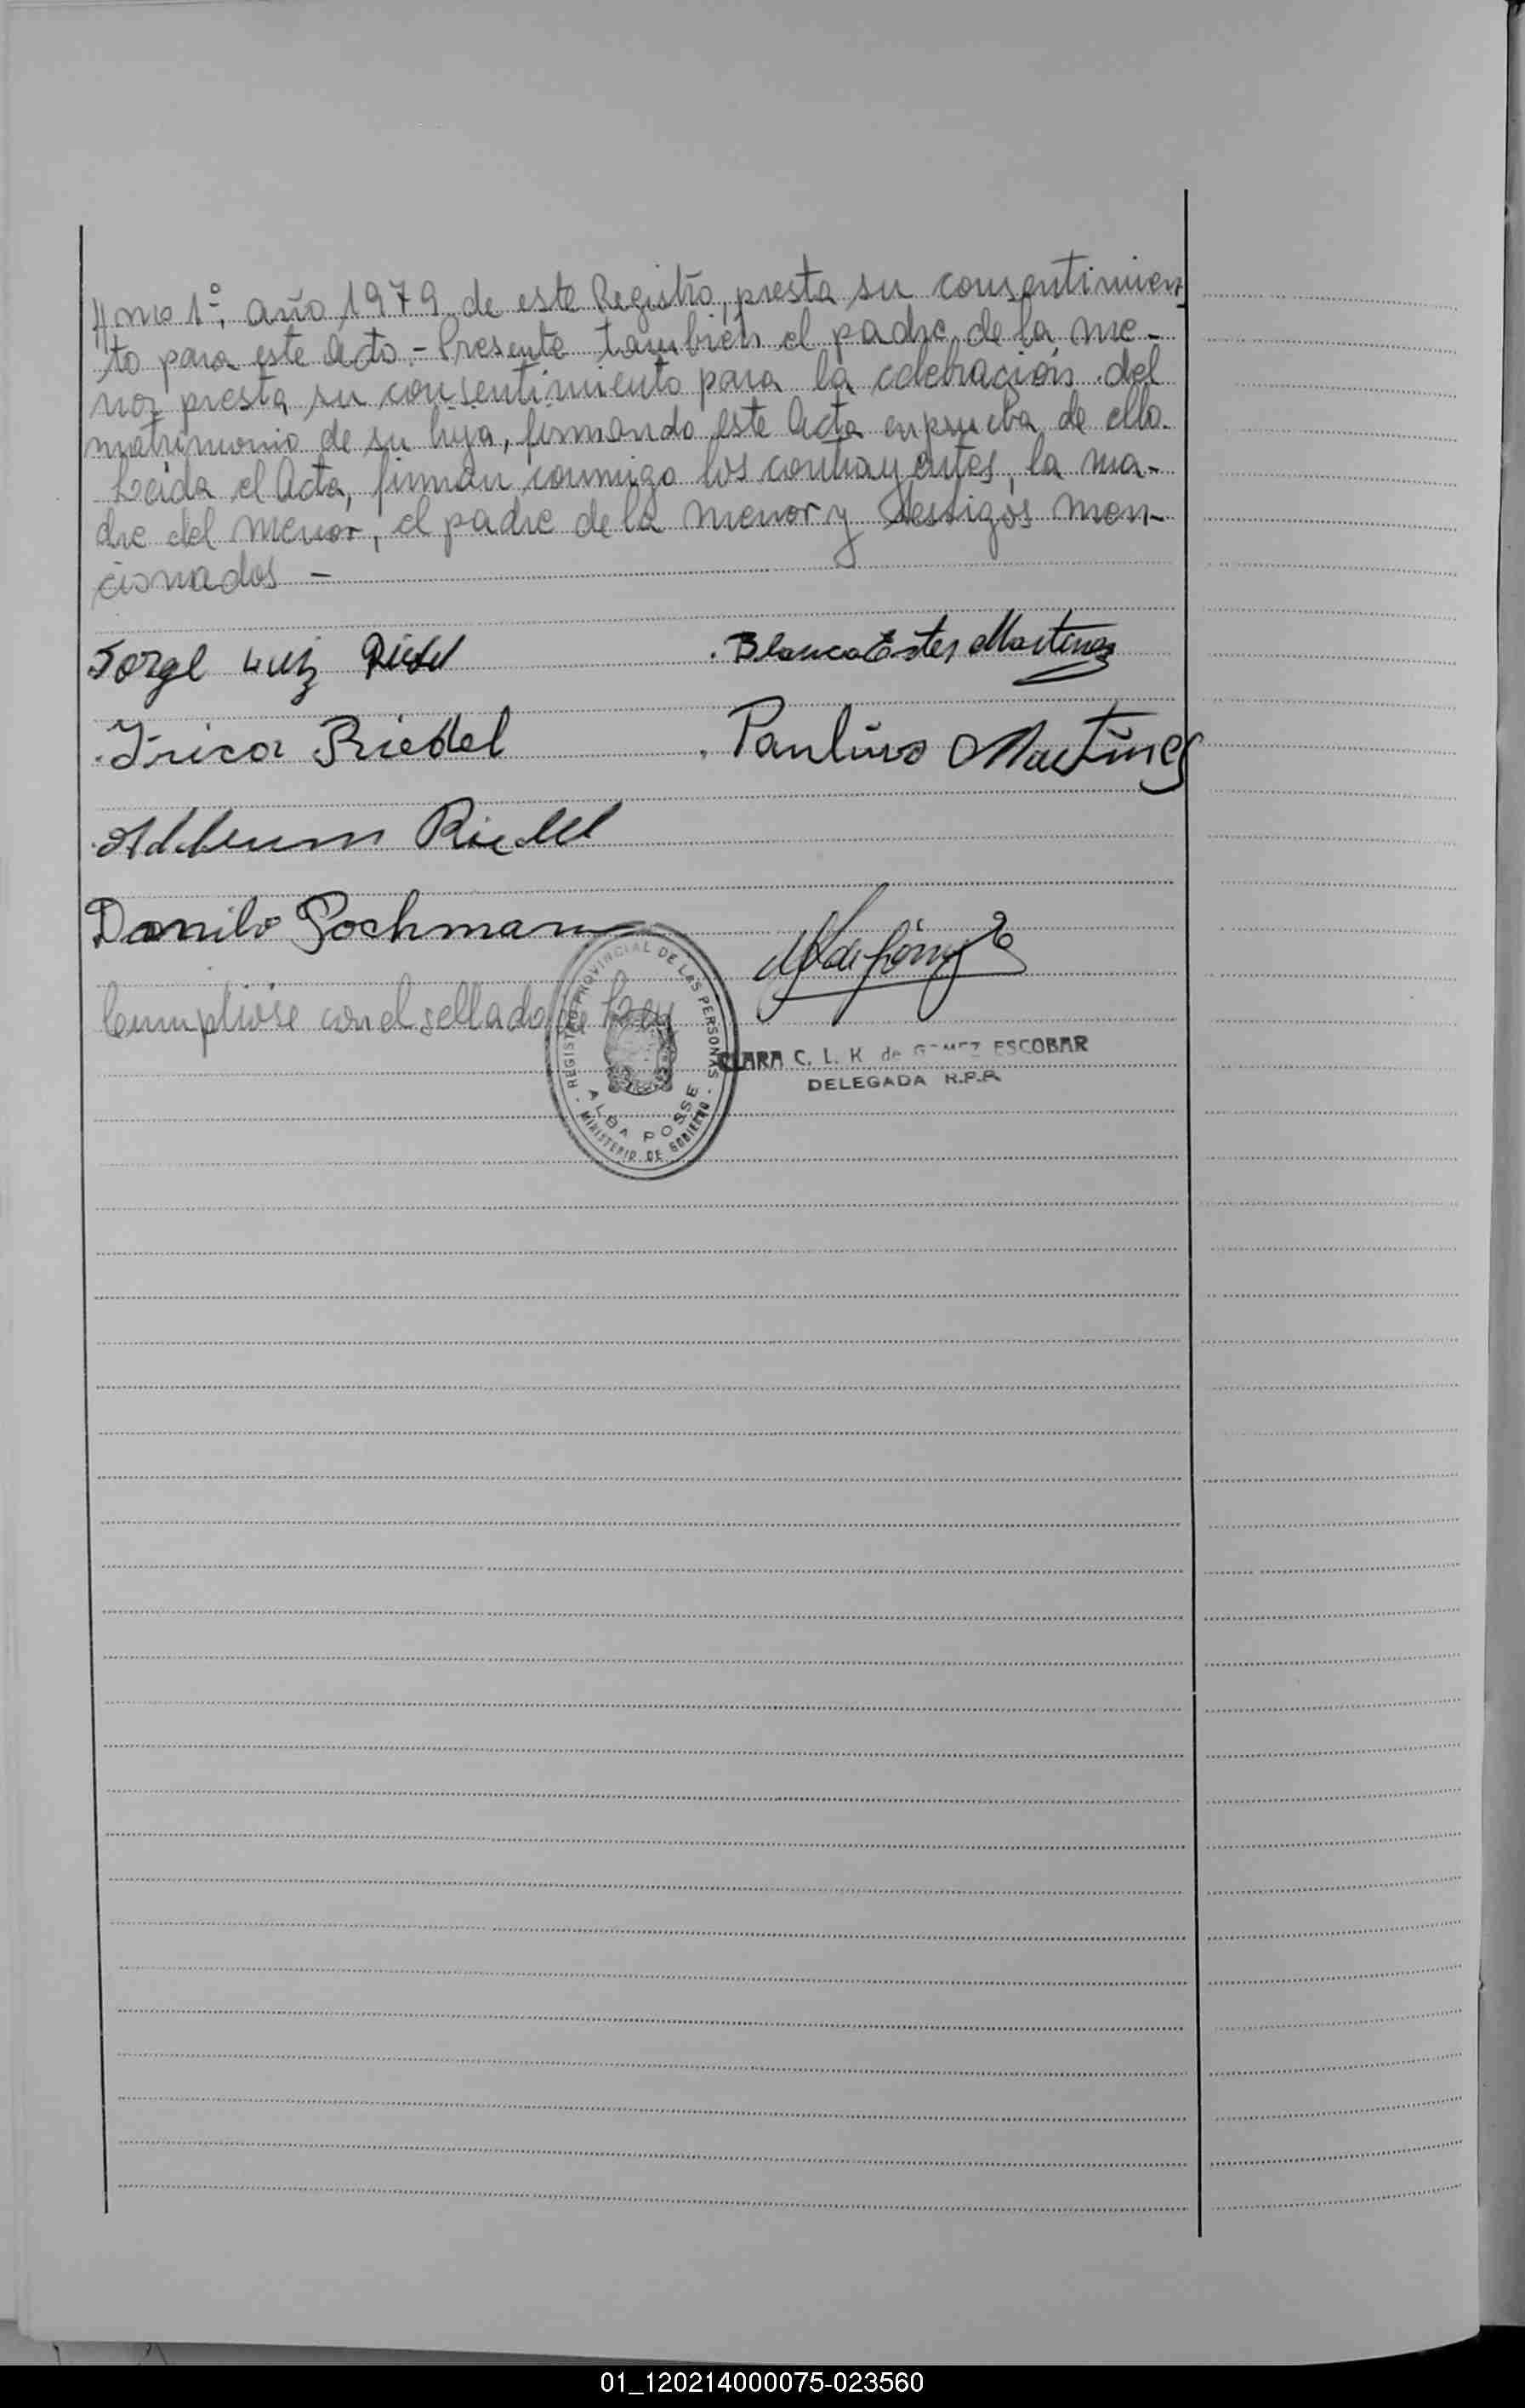 //mo 1º, año 1979 de este Registro, presta su consentimien
to para este Acto.- Presente también el padre de la me-
nor presta su consentimiento para la celebración del
matrimonio de su hija, firmando este Acta en prueba de ello.
Leída el Acta, firman conmigo los contrayentes, la ma-
dre del menor, el padre de la menor y testigos men-
cionados -
Jorge Luiz Riedel
Blanca Ester Martinez
Irica Riedel
Paulino Martines
Riedel
Danilo Pochmann
Cumpliose con el sellado de Ley
REGISTRO PROVINCIAL DE LAS PERSONAS
ALBA POSSE
MINISTERIO DE GOBIERNO
CLARA C. L. K. de GOMEZ ESCOBAR
DELEGADA R.P.P.
01_120214000075-023560